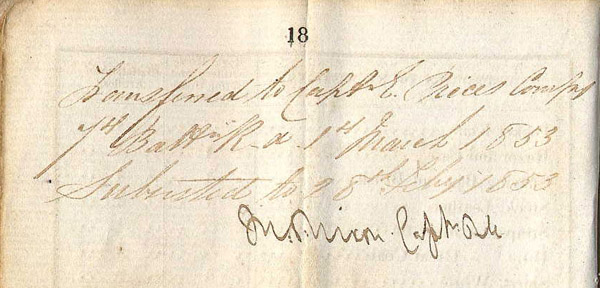 18
Transferred to Captn E. Prices Compy
7th Battn R.A. 1st March 1853
Subsisted to 28th Feby 1853
Captn RA